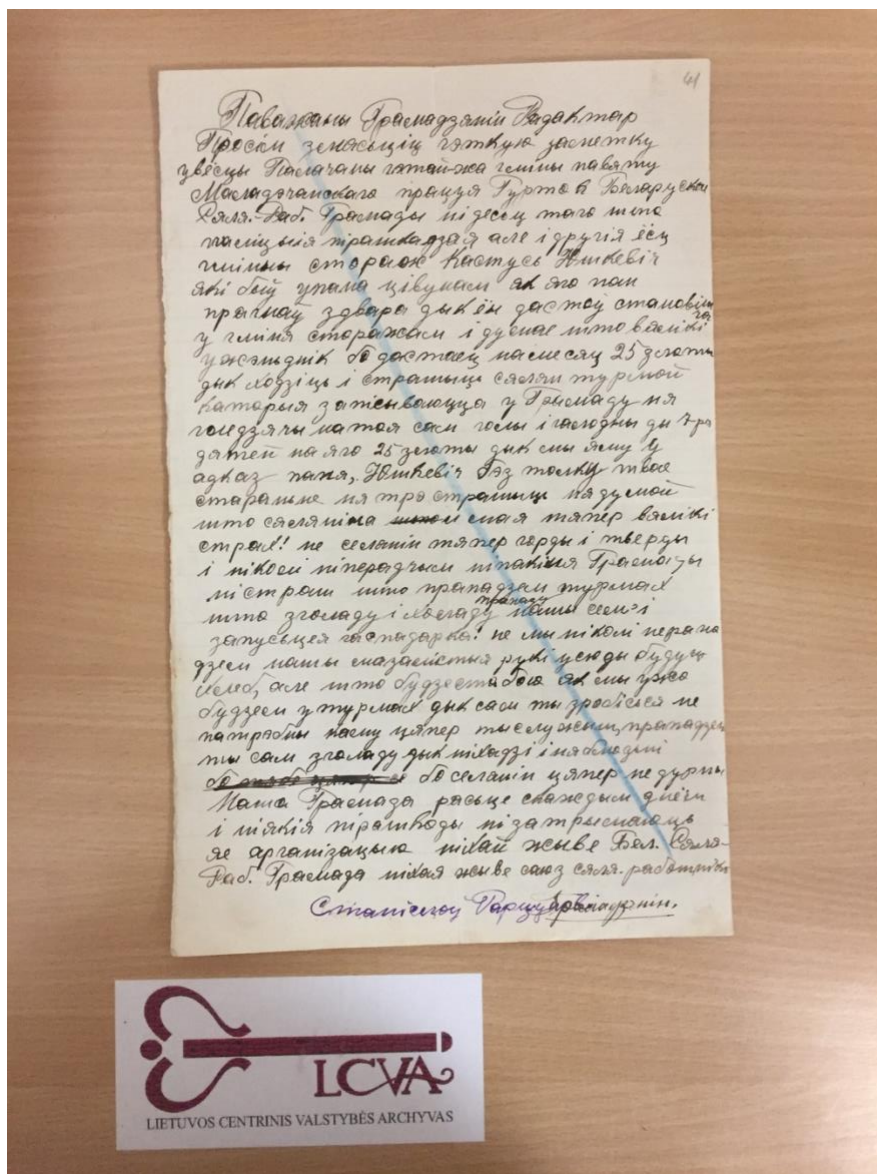 41
Паважаны Грамадзянін Рэдактар
Просім зьмясьціць гэткую заметку
у вёсцы Палачаны гэтай-жа гміны павяту
Маладэчанскаго працуя Гурток Беларускай
Сяля.-Раб. Грамады нідесец таго што
паліцыія пірашкадзая але і другія ёсц
гмінны старож Кастусь Юшкевіч
які быў упана цівунам як яго пан
прагнаў здвара дык ён дастаў становішча
у гміня старажам і думае што вялікі
ужэльднік бо дастаец на месяц 25 злоты
дык ходзіць і страшыць сялян турмой
каторыя запісываюцца у Грамаду ня
гледзячы на тоя сам голы і галодны ды 7-ра
дзяцей на яго 25 злоты дык мы яму у
адказ паня, Юшкевіч Бэз толку твае
стараньне ня трэ страшыць ня думой
што селяніна мая тяпер вялікі
страх! не селянін тяпер горды і тверды
і ніколі ніперадчым ніпакіня Грамады
ні страш што прападзем турмах
што зголаду і холаду прападу нашы семьі
запусьцея гаспадарка! не мы ніколі перапа
дзем нашы мазалістыя рукі усюды будуць
хлеб, але што будзе стабою як мы ужо
будзем у турмах дык сам ты зробісься не
патрэбны каму цяпер ты служыш, прападзеш
ты сам зголаду дык ніхадзі і ня блюзні
бо селянін цяпер не дурны
Наша Грамада расьце скаждым днём
і ніякія пірашкоды ні затрымаюць
яе арганізацыю ніхай жыве Бел. Сяля-
Раб. Грамада ніхая жыве саюз сяля. работніка
Станіслаў
LCVA
LIETUVOS CENTRINIS VALSTYBĖS ARCHYVAS